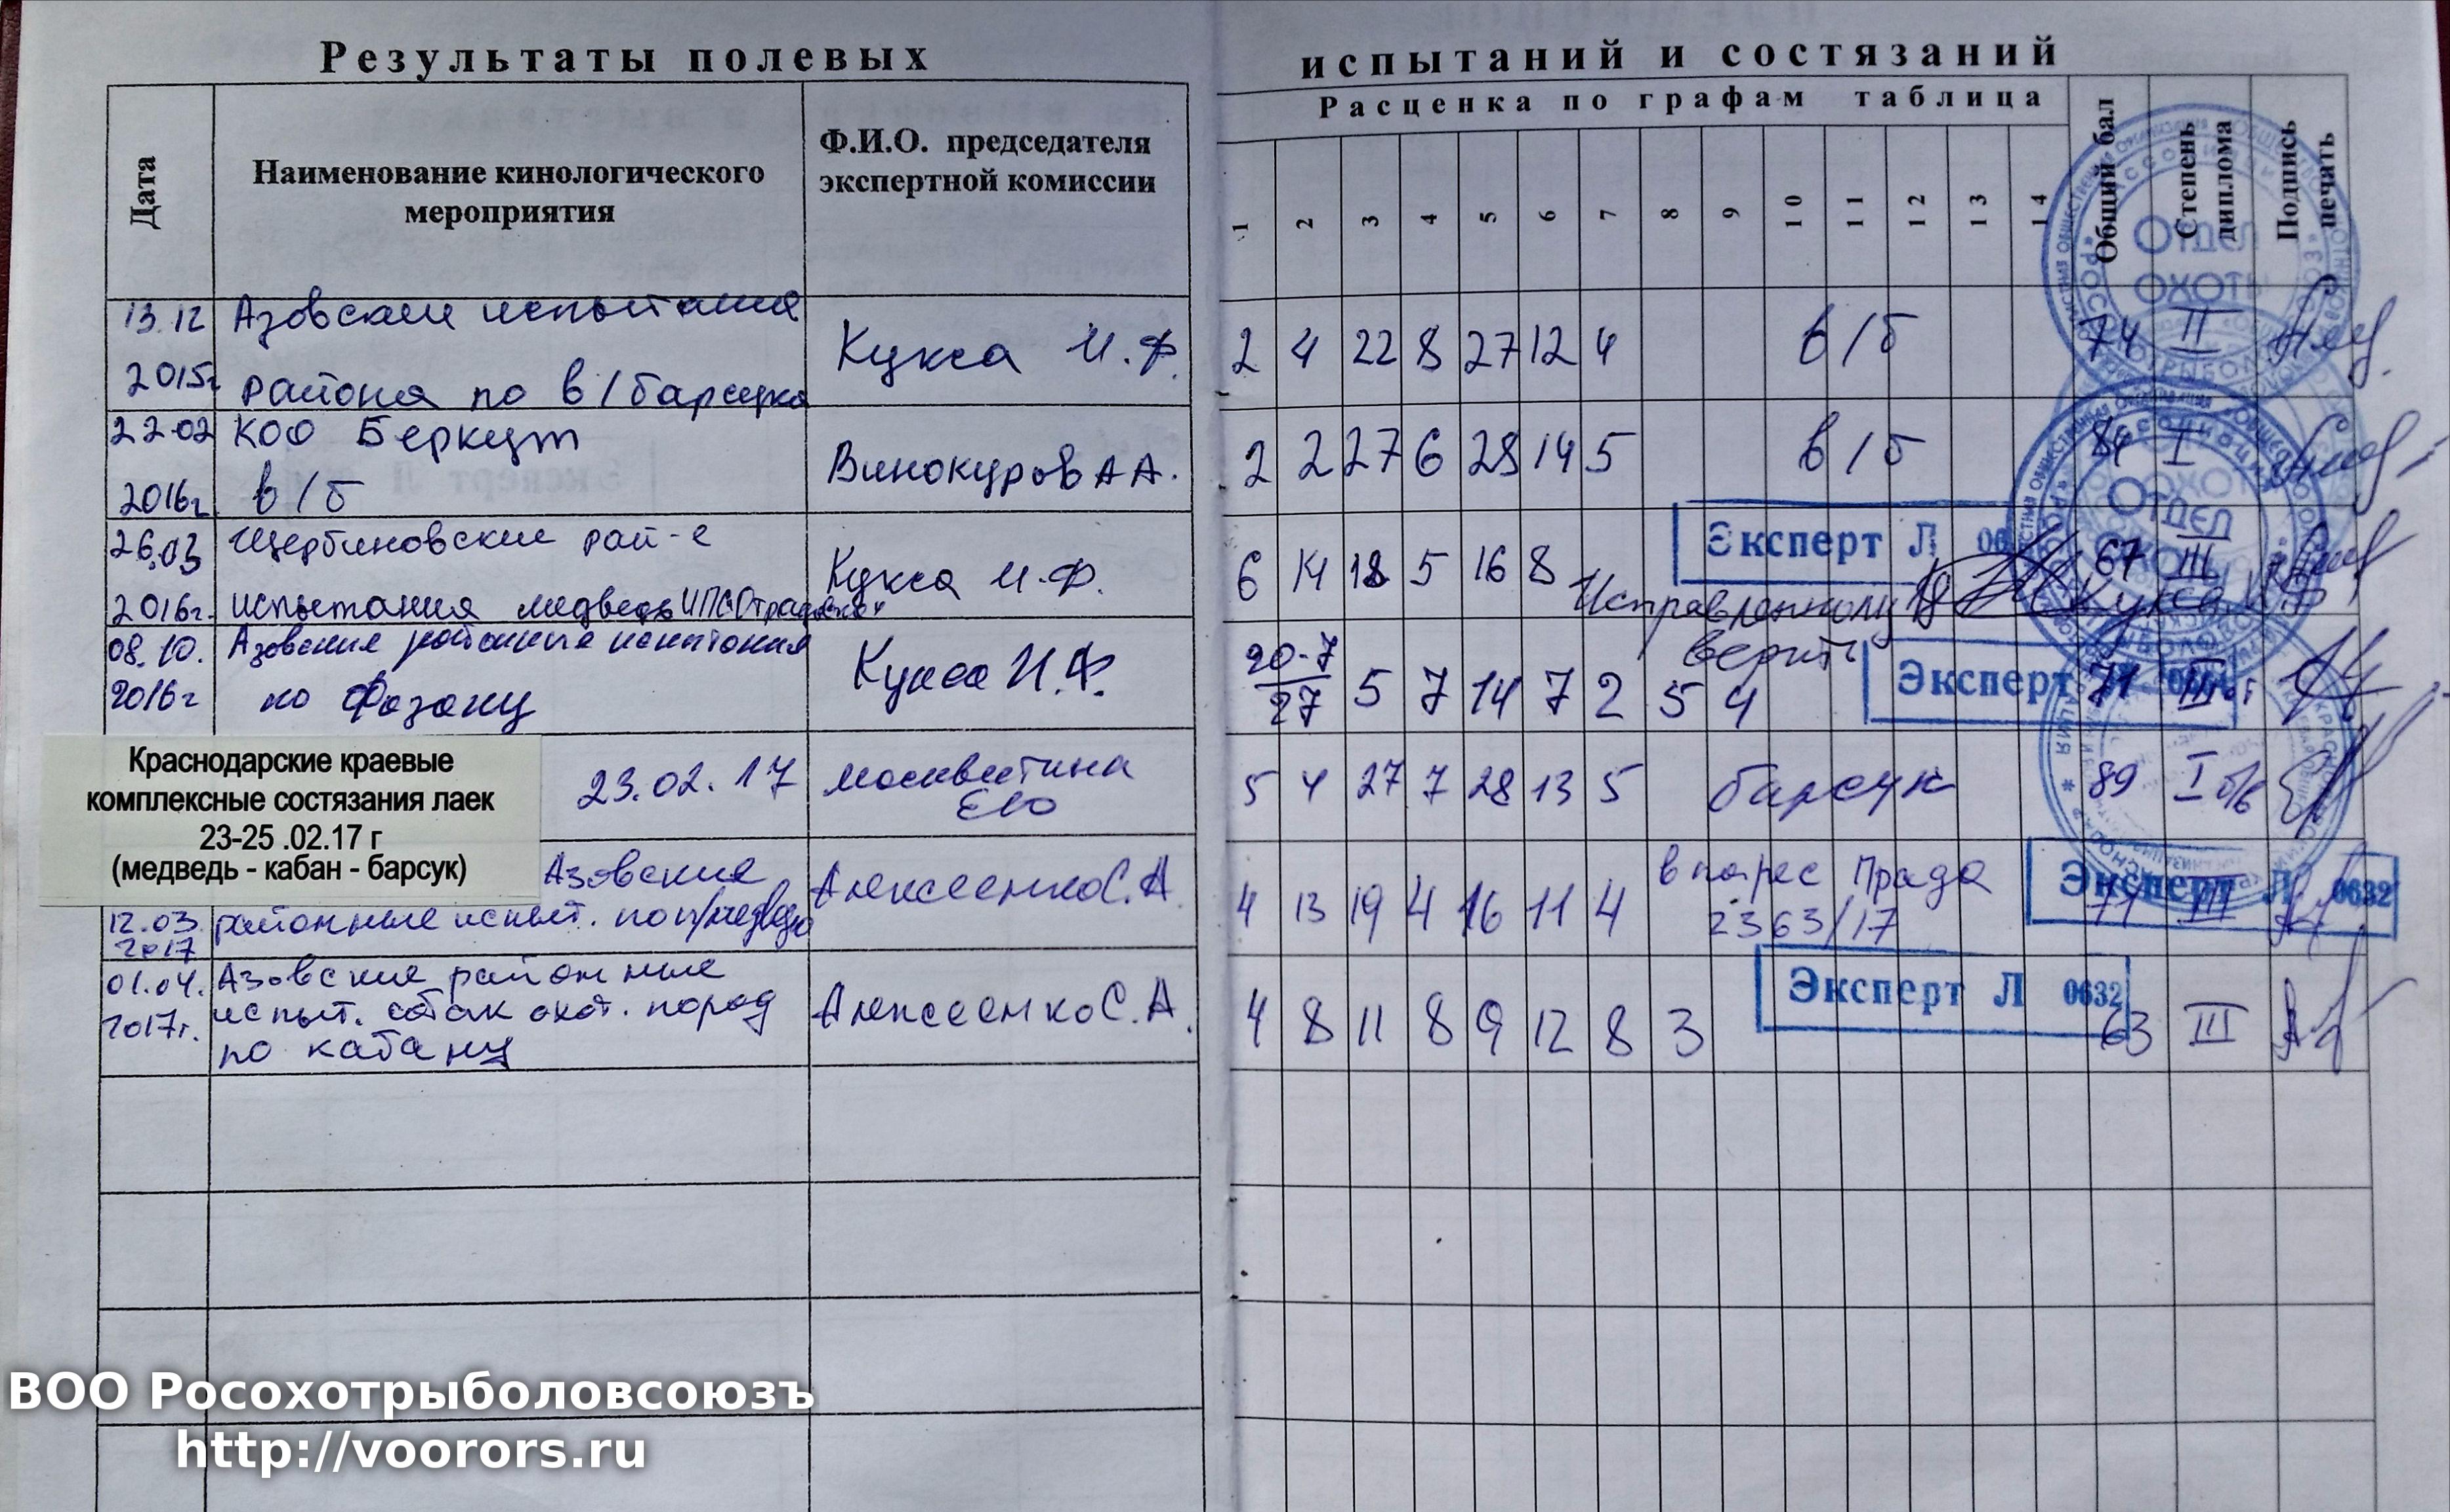 Результаты полевых испытаний и состязаний
Дата
Наименование кинологического
мероприятия
Ф.И.О. председателя
экспертной комиссии
Расценка по графам таблица
1 2 3 4 5 6 7 8 9 10 11 12 13 14
Общий бал
Степень
диплома
Подпись
печать
Отдел
охоты
13.12
2015г
Азовские испытания
района по в/барсука
Кукса И.Ф.
2 4 22 8 27 12 4 в/б 74 II
22.02
2016г.
КОО Беркут
в/б
Винокуров А А.
2 2 27 6 28 14 5 в/б 84 I
Отдел
26.03
2016г.
Щербиновские рай-е
испытания медведь ИПС
Кукса И.Ф.
6 14 18 5 16 8 67 III
Эксперт Л
Исправленному
верить
Кукса И.Ф
08.10.
2016г
Азовские районные испытания
по Фазану
Кукса И.Ф.
20-7
27 5 7 14 7 2 5 4 71 III
Эксперт
Краснодарские краевые
комплексные состязания лаек
23-25 .02.17 г
(медведь - кабан - барсук)
23.02.17
Москвитина
ЕЮ
5 4 27 7 28 13 5 барсук 89 I б/в
12.03.
2017
Азовские
районные испыт. по п/медведю
Алексеенко С.А
4 13 19 4 16 11 4 в паре с Прада
2363/17
71 III
Эксперт Л 0632
01.04.
2017г.
Азовские районные
испыт. собак охот. пород
по кабану
Алексеенко С.А.
4 8 11 8 9 12 8 3 63 III
Эксперт Л 0632
ВОО Росохотрыболовсоюзъ
http://voorors.ru